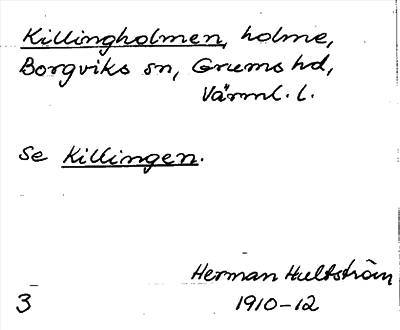 Killingholmen, holme,
Borgviks sn, Grums hd,
Värml. l.
Se Killingen.
Herman Hultström
3 1910-12